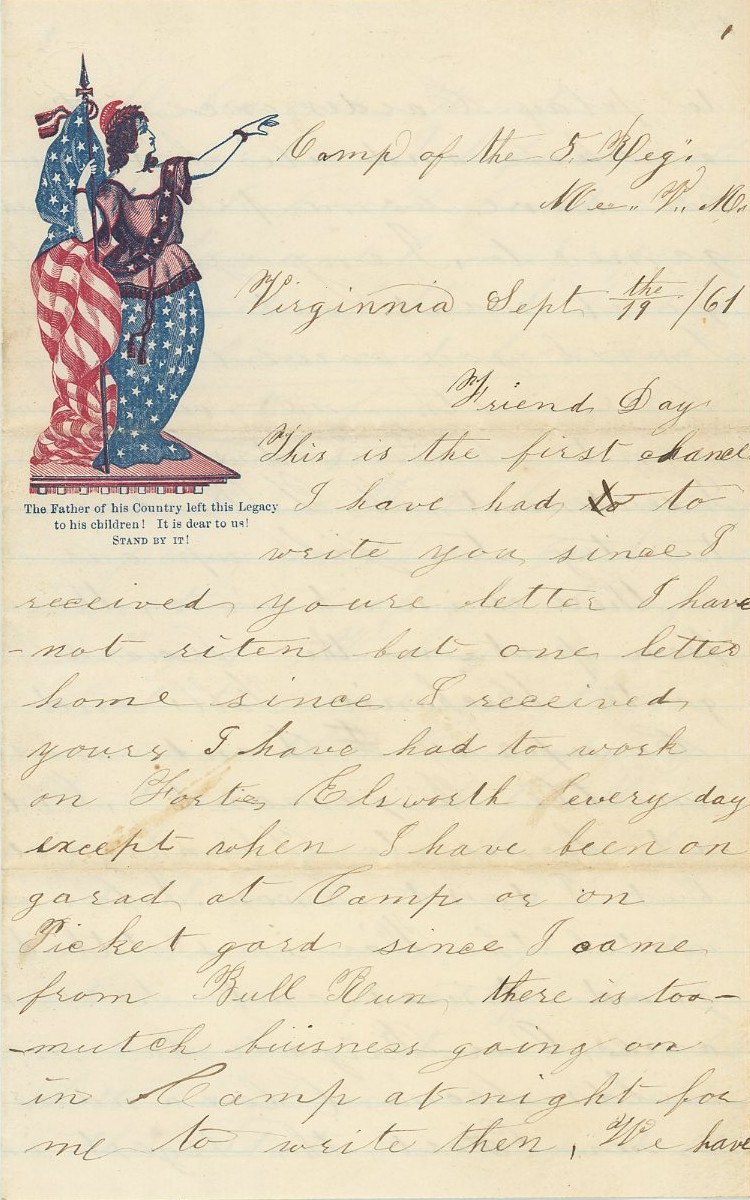 1
Camp of the 5 Reg".
Me" V" M"
Virginnia Sept the 19 /61
Friend Day
This is the first chance
I have had to to
write you since I
received youre letter I have
not riten but one letter
home since I received
yours I have had to work
on Forte Elsworth every day
except when I have been on
garad at Camp or on
Picket gard since I came
from Bull Run, there is too
mutch buisness going on
in Camp at night for
me to write then, We have
The Father of his Country left this Legacy
to his children! It is dear to us!
STAND BY IT!